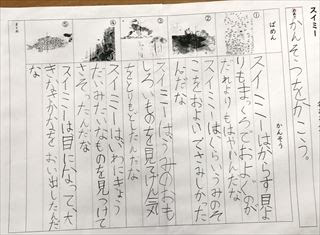 スイミー
かこう。
ばめん
かんそう
①
スイミーはからす貝よ
りもまっくろでおよぐのが
だれよりもはやいんだな
②
スイミーはくらいうみのそ
こをおよいでさみしかった
んだな
③
スイミーはうみのおも
しろいものを見てげん気
をとりもどしたんだな
④
スイミーはいわにきょう
だいみたいなものを見つけて
さそったんだな
⑤
スイミーは目になって、大
きなさかなをおい出したんだ
な